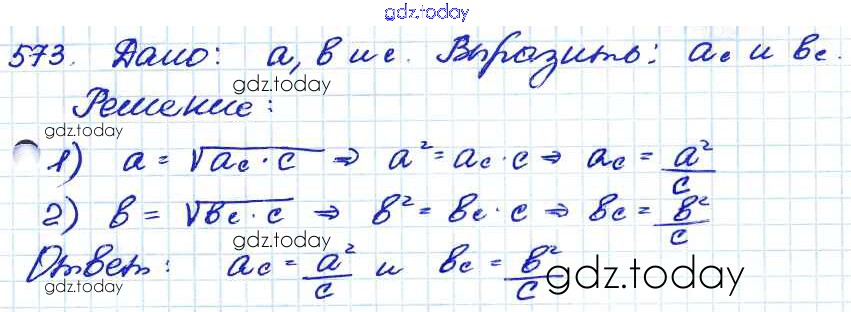 gdz.today
573. Дано: a, b и c. Выразить: a_c и b_c.
gdz.today
Решение:
gdz.today
1) a = √(a_c · c) ⇒ a² = a_c · c ⇒ a_c = a²/c
2) b = √(b_c · c) ⇒ b² = b_c · c ⇒ b_c = b²/c
gdz.today
Ответ: a_c = a²/c и b_c = b²/c
gdz.today